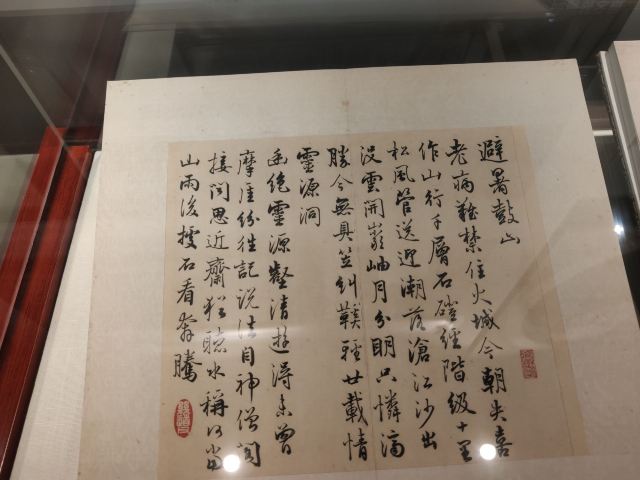 避暑鼓山
老病難禁住火城今朝失喜
作山行千層石磴經階級十里
松風管送迎潮落滄江沙出
沒雲開巖岫月分明只憐濟
勝今無具笠糾鞵輕廿載情
靈源洞
幽絕靈源壑清遊淂未曾
摩崖紛往記說法自神僧閣
接聞思近齋猶聽水稱何當
山雨後據石看奔騰